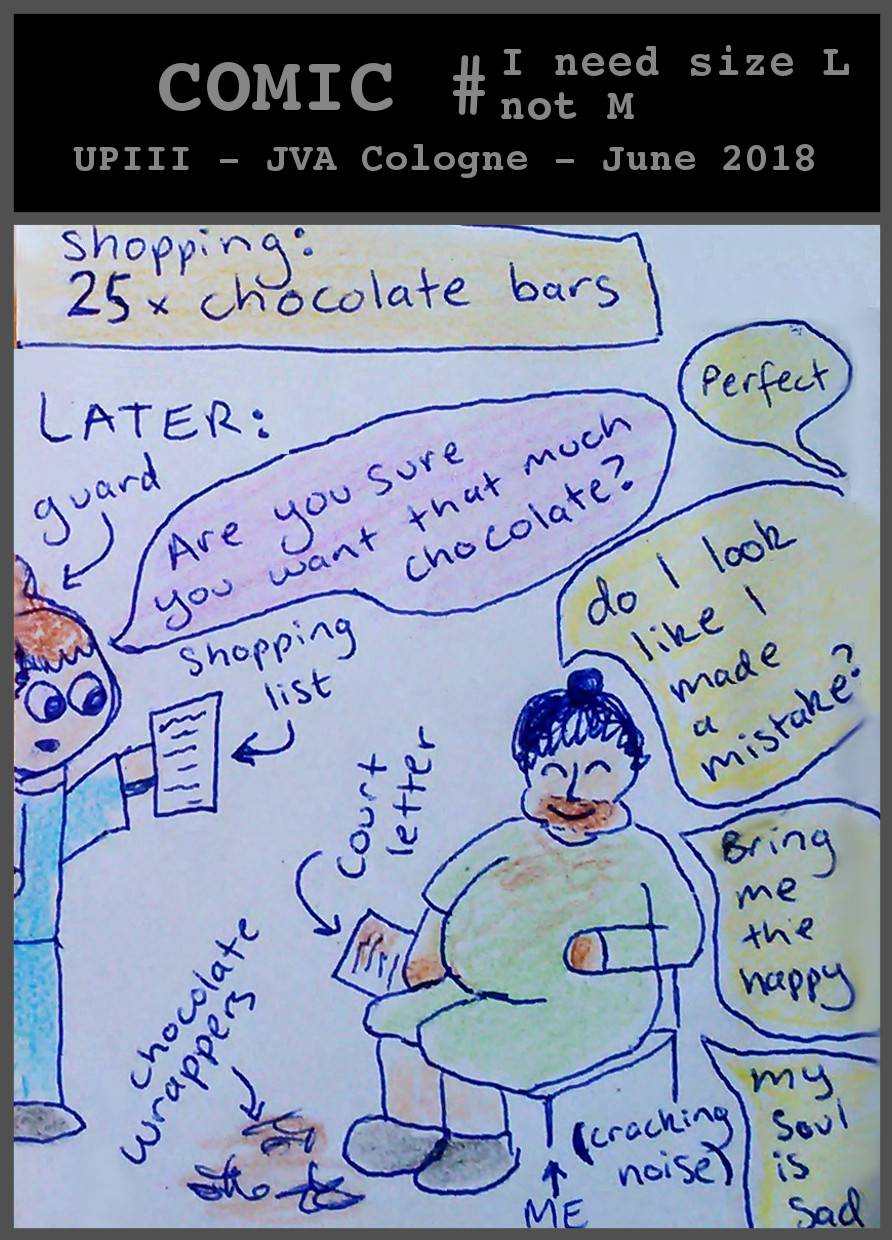 COMIC # I need size L
not M
UPIII - JVA Cologne - June 2018
shopping:
25x chocolate bars
Perfect
LATER:
guard
Are you sure
you want that much
chocolate?
do I look
like I
made
a
mistake?
shopping
list
court
letter
Bring
me
the
happy
chocolate
wrappers
my
soul
is
sad
(cracking
noise)
ME